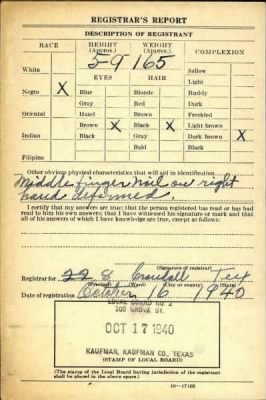 REGISTRAR'S REPORT
DESCRIPTION OF REGISTRANT
RACE
HEIGHT (Approx.)
WEIGHT (Approx.)
COMPLEXION
5-9
165
White
EYES
HAIR
Sallow
Light
Negro X
Blue
Blonde
Ruddy
Gray
Red
Dark
Oriental
Hazel
Brown
Freckled
Brown X
Black X
Light brown
Indian
Black
Gray
Dark brown X
Bald
Black
Filipino
Other obvious physical characteristics that will aid in identification
Middle finger nail on right
hand deformed.
I certify that my answers are true; that the person registered has read or has had
read to him his own answers; that I have witnessed his signature or mark and that
all of his answers of which I have knowledge are true, except as follows:
(Signature of registrar)
Registrar for 22 8 Crandall Tex
(Precinct) (Ward) (City or county) (State)
Date of registration October 16 1940
LOCAL BOARD NO. 2
100 GROVE ST.
OCT 17 1940
KAUFMAN, KAUFMAN CO., TEXAS
(STAMP OF LOCAL BOARD)
(The stamp of the Local Board having jurisdiction of the registrant
shall be placed in the above space.)